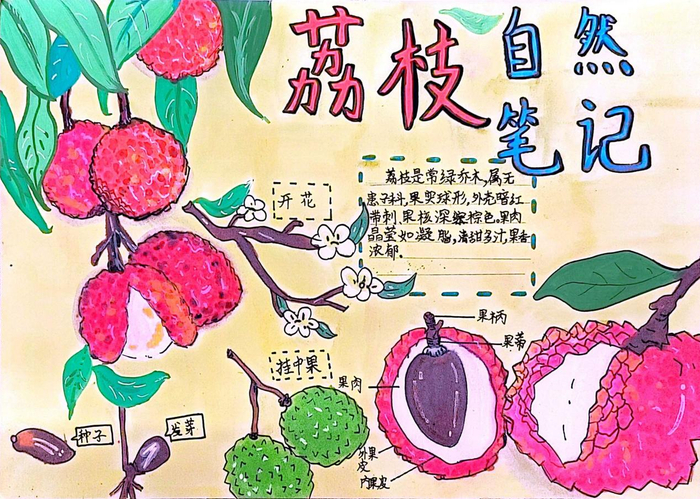 荔枝
自然
笔记
荔枝是常绿乔木,属无
患子科,果实球形,外壳暗红
带刺,果核深棕色。果肉
晶莹如凝脂,清甜多汁,果香
浓郁.
开花
挂中果
果柄
果蒂
果肉
外果
皮
内果皮
种子
发芽